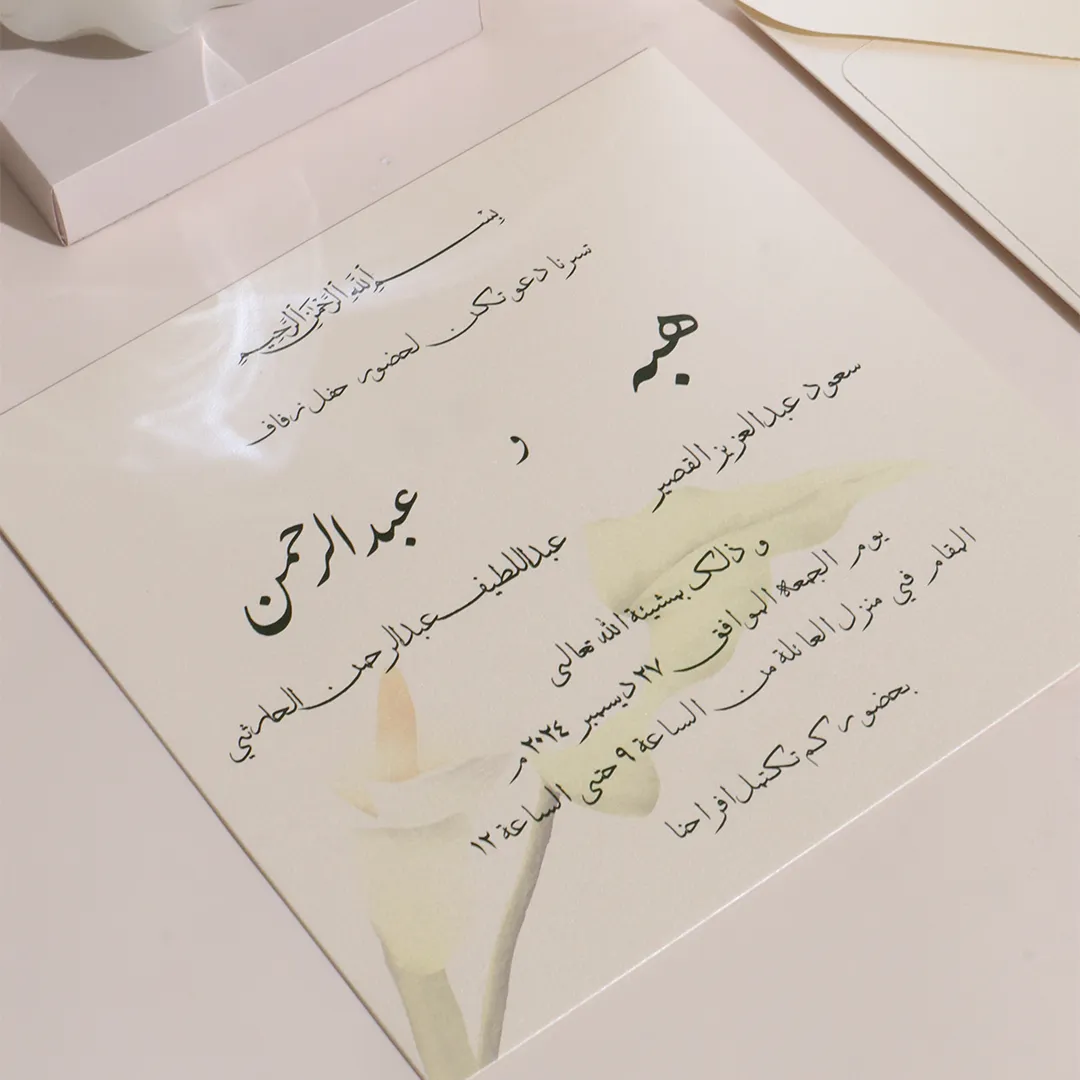 بِسْمِ اللَّهِ الرَّحْمَنِ الرَّحِيمِ
تسرنا دعوتكن لحضور حفل زفاف
هبه
سعود عبدالعزيز القصير
و
عبدالرحمن
عبداللطيف عبدالرحمن الحارثي
و ذلك بمشيئة الله تعالى
يوم الجمعة الموافق ٢٧ ديسمبر ٢٠٢٤ م
المقام في منزل العائلة من الساعة ٩ حتى الساعة ١٢
بحضوركم تكتمل افراحنا